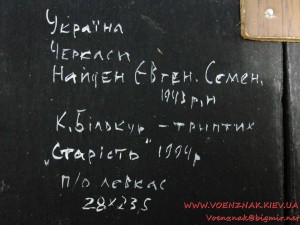 Україна
Черкаси
Найден Євген. Семен.
1943 р.н
К. Білокур - триптих
„Старість" 1994р
п/о левкас
28х23,5
WWW.VOENZNAK.KIEV.UA
Voenznak@bigmir.net